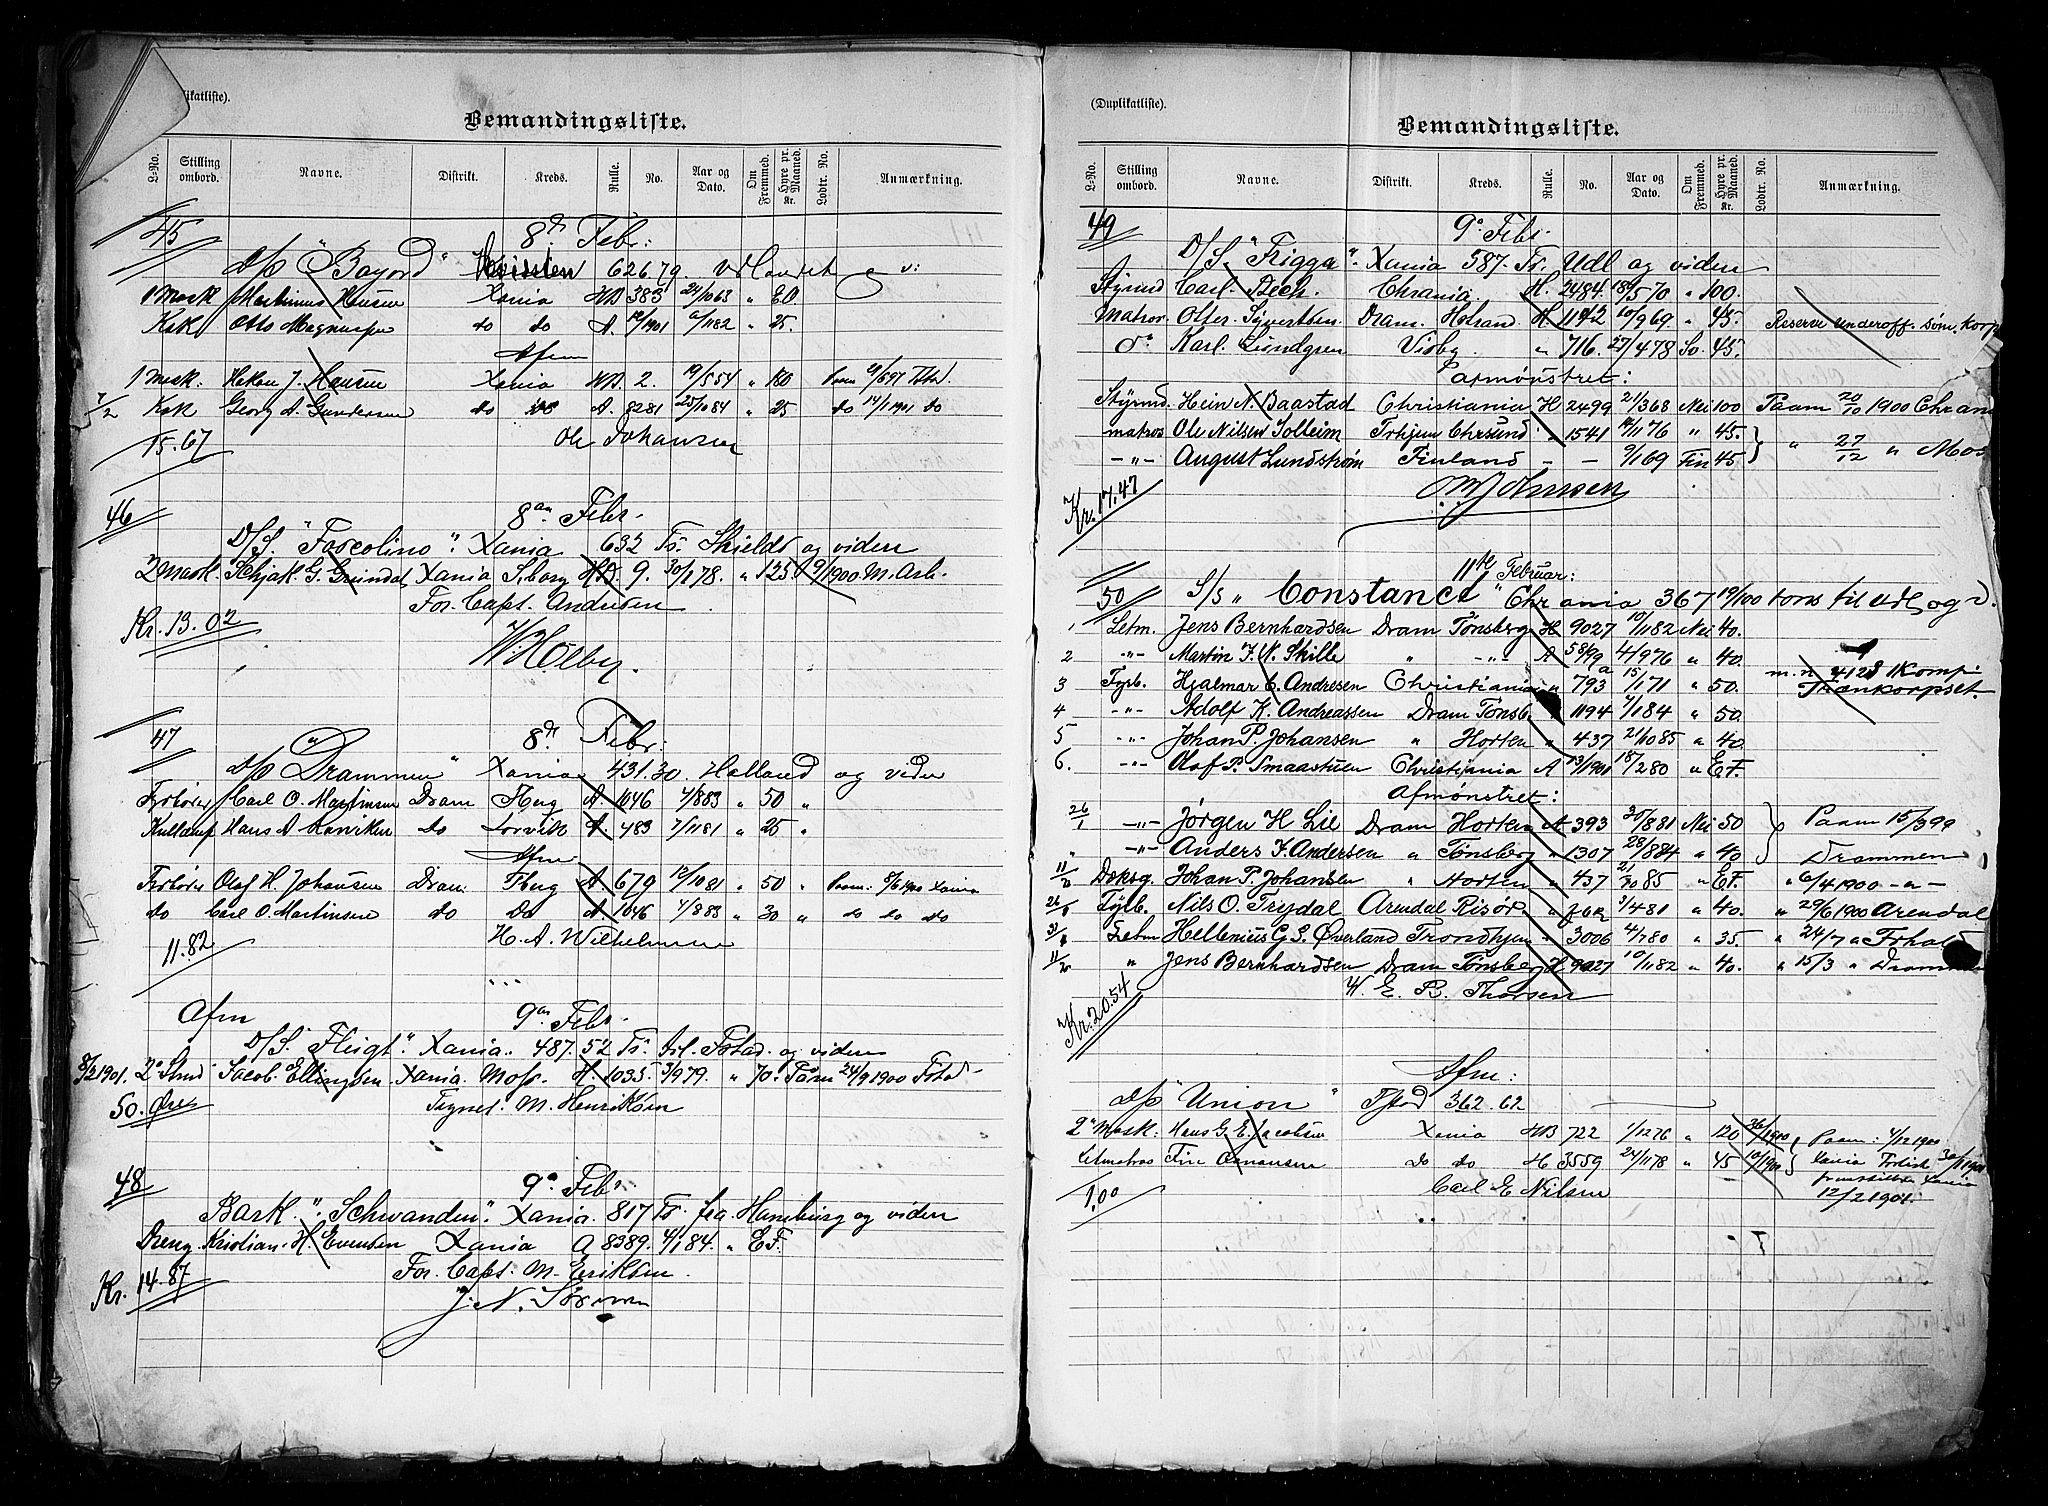 (Duplikatliste).
Bemandingsliste.
L-No. Stilling ombord. Navne. Distrikt. Kreds. Rulle. No. Aar og Dato. Om Fremmed. Hyre pr. Maaned. Kr. Lodtr. No. Anmærkning.
45 8de Febr:
D/S "Bayard" 626.79 Udlandet o v:
1 Mask Martinius Hansen Xania HB 383 24/10 63 " EO
Kok Otto Magnussen do do A. 1901 82 " 25.
Afm
1 Mask. Hakon J. Hansen Xania HB. 2. 19/5 54 " 180 Paam 97 Fstad.
7/2 Kok Georg A. Gundersen do do A. 8281 25/10 84 " 25 do 14/1 1901 do
15.67 Ole Johansen
46 8de Febr.
D/S. "Torcolino". Xania 632 Ts. Skields og videre
2 Mask. G. Grindal Xania S.borg HB. 9. 30/1 78. " 125 9/1900 M. Arb.
For Capt. Andersen
Kr. 13.02
W. Holby.
47 8de Febr.
D/S "Drammen" Xania 431.30. Holland og vider
Fyrbøder Carl O. Martinsen Dram Fberg A. 1046 4/8 83 " 50 "
Kullemp Hans A. Larviken do Larvik A. 483 7/11 81 " 25 "
Afm
Fyrbøder Olaf H. Johansen Dram. Fberg A 679 12/10 81 " 50 " Paam. 8/6 1900 Xania
do Carl O. Martinsen do Do A 1046 4/8 83 " 30 " do do do
11.82 H. A. Wilhelmsen
Afm 9de Febr.
D/S. "Flugt". Xania. 487.52 Ts. til Fstad. og videre
8/2 1901. 2d Stmd Jacob Ellingsen Xania. Moss. H. 1035. 3/9 79. " 70. Paam 24/9 1900 Fstad
50. Øre Tegnet. M. Henriksen
48 9de Feb.
Bark. "Schwanden". Xania. 817 Ts. fra Hamburg og videre
Dreng Kristian. H. Evensen Xania A 8389. 4/1 84. " EF.
For Capt. M. Eriksen.
Kr. 14.87
J. N. Sørensen
(Duplikatliste).
Bemandingsliste.
L-No. Stilling ombord. Navne. Distrikt. Kreds. Rulle. No. Aar og Dato. Om Fremmed. Hyre pr. Maaned. Kr. Lodtr. No. Anmærkning.
49 9de Febr.
D/S. "Frigga". Xania 587. Ts. Udl og videre
Styrmd Carl. Bech. Chrania. H. 2484. 18/5 70 " 100.
Matros. Olfer. Syvertsen Dram. Holmsd. H. 1142 10/9 69. " 45. Reserve underoff. Søm. korps
do Karl. Lundgren Visby " 716. 27/4 78 Sv. 45.
Paamønstret:
Styrmd. Hein N. Baastad Christiania H 2499 21/3 68 Nei 100 Paam 20/10 1900 Chrania
matros Ole Nilsen Solheim Trhjem Chrsund " 1541 14/11 76 " 45. } " 27/12 " Moss
-"- August Lundstrøm Finland - - 9/1 69 Fin 45
Kr. 17.47
O. M. Johnsen
11te Februar:
50 S/S "Constance" Chrania 367 19/100 tons til Udl og v.
1 Letm. Jens Bernhardsen Dram Tønsberg H 9027 10/11 82 Nei 40.
2 -"- Martin F. N. Skille " -"- A 58/99 4/9 76 " 40.
3 Fyrb. Hjalmar C. Andresen Christiania " 793 15/1 71 " 50. m. n. 4123 Komp. Trænkorpset
4 -"- Adolf K. Andreassen Dram Tønsb " 1194 7/1 84 " 50
5 -"- Johan P. Johansen " Horten " 437 21/10 85 " 40
6. -"- Olaf P. Smaastuen Christiania A 13/1901 18/2 80 " EF.
Afmønstret:
26/1 -"- Jørgen H Lie Dram Horten A 393 30/8 81 Nei 50 } Paam 15/3 99
" -"- Anders F. Andersen " Tønsberg " 1307 28/8 84 " 40 Drammen
11/2 Doksg. Johan P. Johansen " Horten " 437 21/10 85 " EF. " 6/4 1900 -"-
26/1 Fyrb. Nils O. Trydal Arendal Risør " 3/4 81 " 40. " 29/6 1900 Arendal
31/1 Letm Hellenius G. S. Øverland Trondhjem " 3006 4/7 80 " 35. " 24/7 " Frhald
11/2 " Jens Bernhardsen Dram Tønsberg H 9027 10/11 82 " 40. " 15/3 " Drammen
Kr. 20.54
W. E. R. Thorsen
Afm:
D/S "Union" Fstad 362.62
2d Mask: Hans G. E. Jacobsen Xania HB 722 1/12 76 " 120 26/1900 } Paam: 4/12 1900
Letmatros Finn Do do H 3559 24/11 78 " 45 10/1900 Xania
1.00 Carl E. Nilsen 12/2 1901.